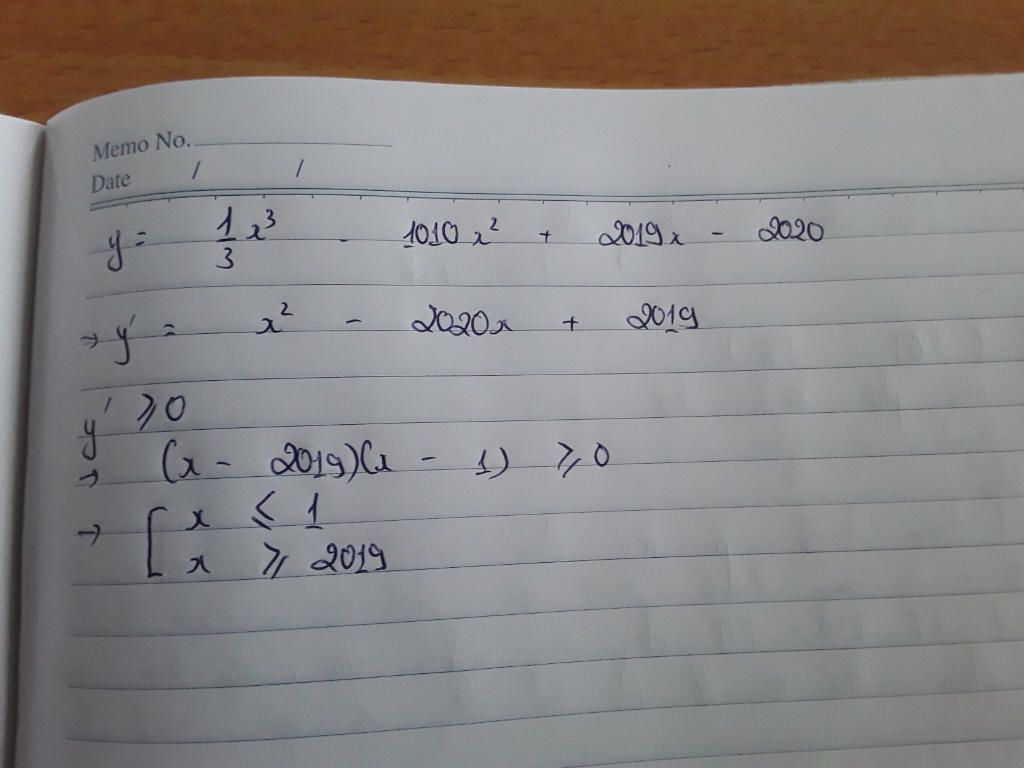 Memo No.
Date / /
y = 1/3 x³ - 1010x² + 2019x - 2020
→ y' = x² - 2020x + 2019
y' ⩾ 0
→ (x - 2019)(x - 1) ⩾ 0
→ [ x ⩽ 1
x ⩾ 2019